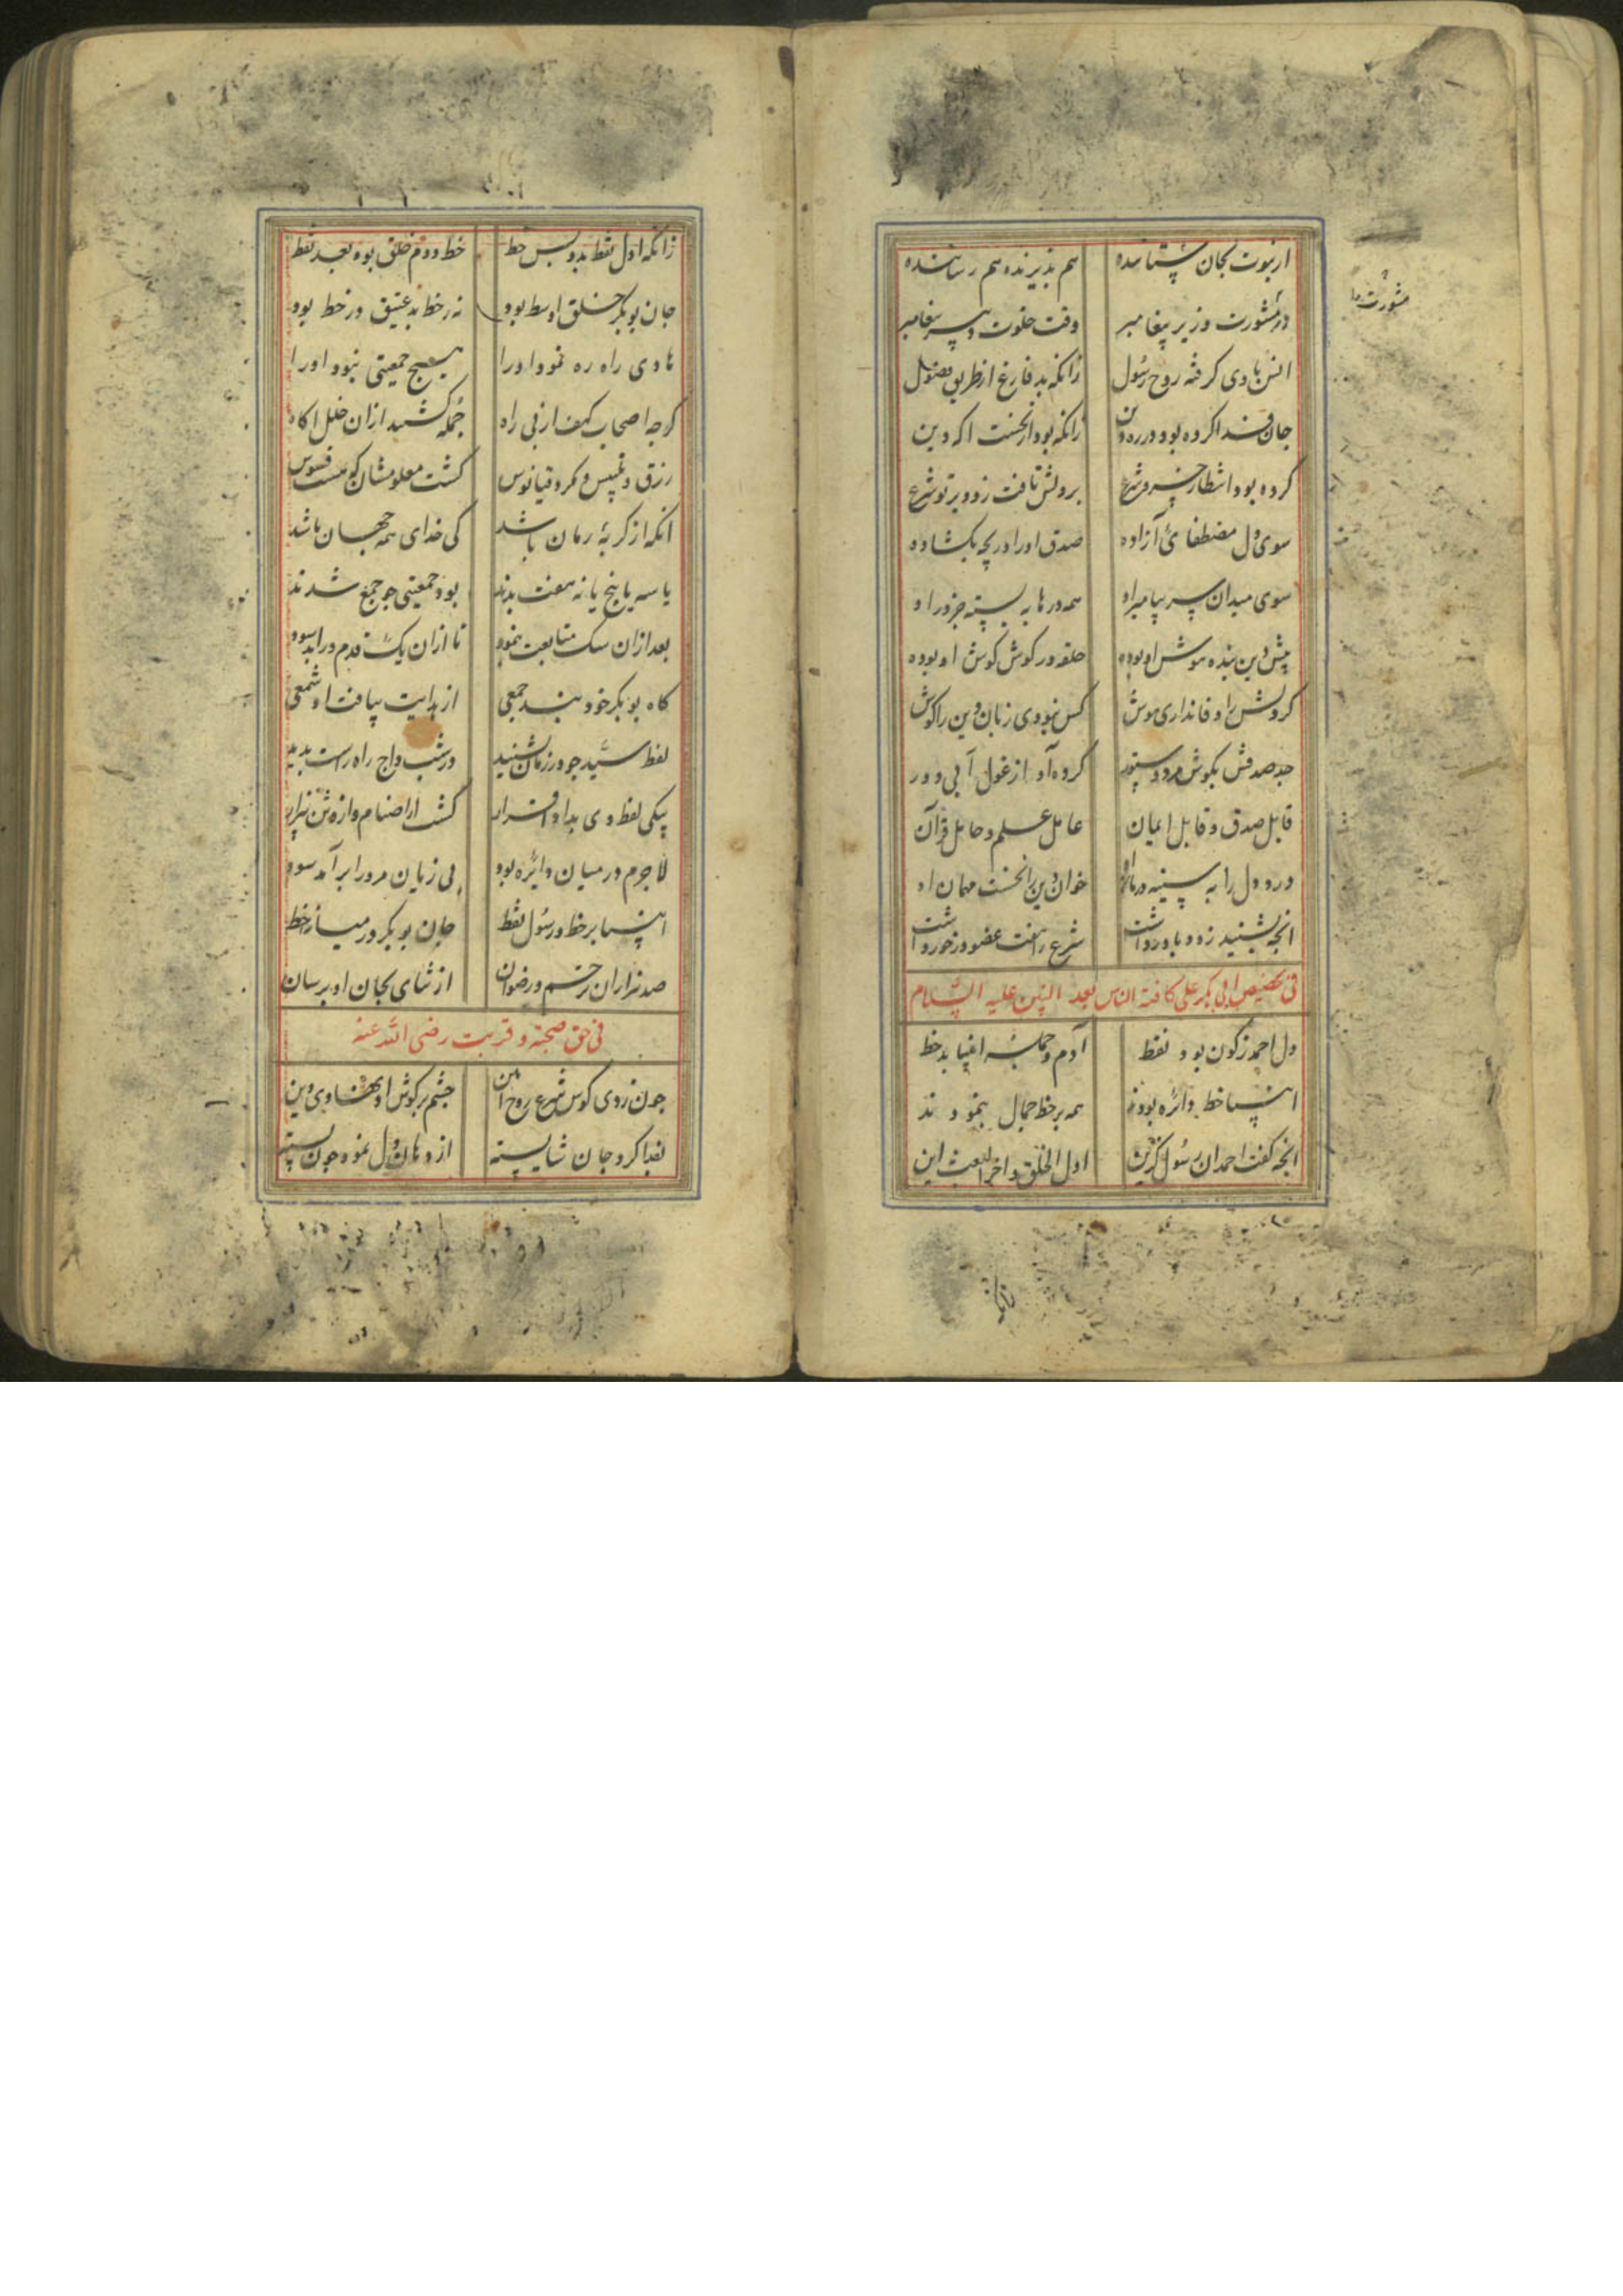 از نبوت بجان ستاننده هم پذیرنده هم رساننده
در مشورت وزیر پیغامبر وقت خلوت دبیر پیغامبر
مشورت ها
انس با وی گرفته روح رسول زانکه بد فارغ از طریق فضول
جان فدا کرده بود در ره دین زانکه بود از نخست اگه دین
کرده بود انتظار خسرو شرع بر دلش تافت زود پرتو شرع
سوی دل مصطفائی آزاده صدق او را دریچه بکشاده
سوی میدان سر پیامبر او همه درها به بسته جز در او
پیش دین بنده هوش او بوده حلقه در گوش گوش او بوده
کردلش را وفانداری هوش کس نبودی زبان دین را گوش
جد صدقش بگوش مرد ستور کرده آواز غول آبی دور
قابل صدق و قابل ایمان عامل علم و حامل قرآن
درد دل را به سینه درمان او خوان دین را نخست مهمان او
انچه بشنید زود باور داشت شرع را هفت عضو در خور داشت
فی تخصیص ابی بکر علی کافة الناس بعد النبیین علیه السلام
دل احمد ز کون بود نقط آدم و جمله انبیا بد خط
انبیا خط دائره بودند همه بر خط جمال بنمودند
انچه گفت احمد ان رسول گزین اول الخلق و آخر البعث این
زانکه
زانکه اول نقط بد و پس خط خط دوم خلق بود بعد نقط
جان بوبکر خلق اوسط بود نه ز خط بد عتیق در خط بود
هادی راه ره نمود او را هیچ جمعیتی نبود او را
گرچه اصحاب کهف از پی راه جمله گشتند ازان خلل اگاه
زرق و تلبیس و مکر دقیانوس گشت معلومشان که هست فسوس
انکه از گربهٔ رمان باشد کی خدای همه جهان باشد
یا سه یا پنج یا نه هفت بدند بود جمعیتی چو جمع شدند
بعد ازان سک متابعت بنمود تا ازان یک قدم در ابد سود
گاه بوبکر خود نبد جمعی از هدایت بیافت او شمعی
لفظ سید چو در زمان بشنید در شب داج راه راست بدید
بیکی لفظ وی بداد اقرار گشت از اصنام و از وثن بیزار
لاجرم در میان دائره بود بی زیان مرو را برآمد سود
انبیا بر خط و رسول نقط جان بوبکر در میان خط
صد هزاران ترحم و رضوان از ثنای بجان او برسان
فی حق صحبته و قربت رضی الله عنه
چون زدی کوس شرع روح امین چشم بر گوش او نهادی دین
لقبا کرد جان شایسته از دهان دل نموده چون پسته